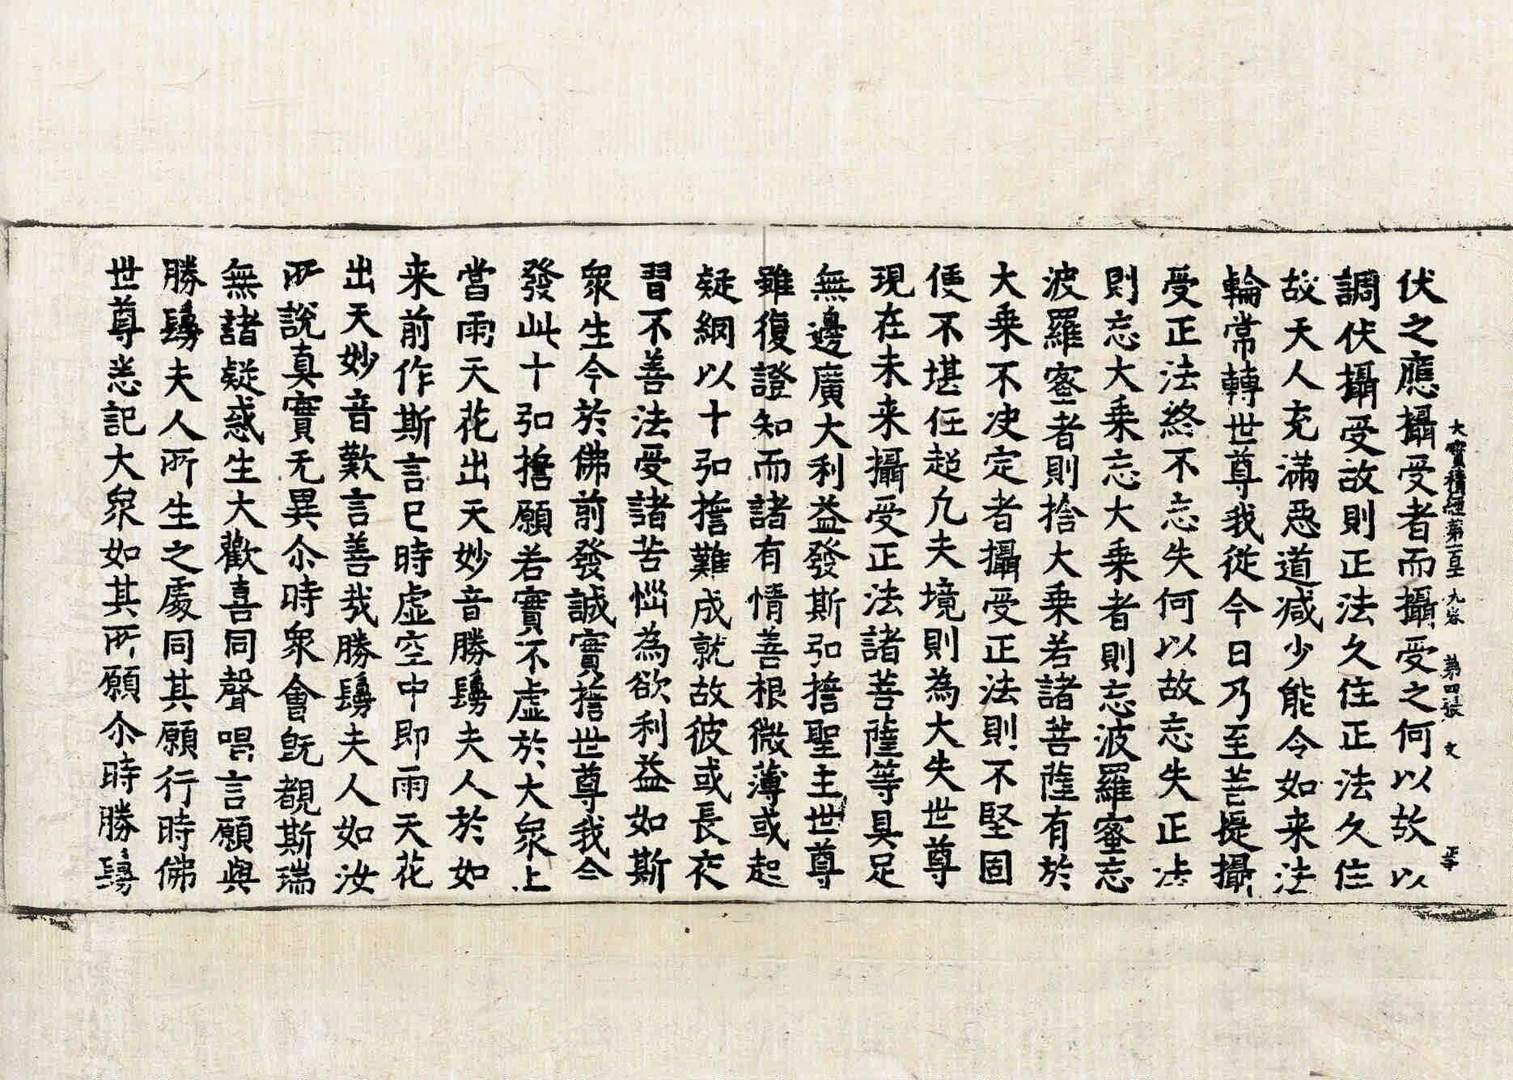 大寶積經第一百一十九卷 第四張 文
伏之應攝受者而攝受之何以故以
調伏攝受故則正法久住正法久住
故天人充滿惡道减少能令如来法
輪常轉世尊我從今日乃至菩提攝
受正法終不忘失何以故忘失正法
則忘大乘忘大乘者則忘波羅蜜忘
波羅蜜者則捨大乘若諸菩薩有於
大乘不决定者攝受正法則不堅固
便不堪任超凡夫境則為大失世尊
現在未来攝受正法諸菩薩等具足
無邊廣大利益發斯弘擔聖主世尊
雖復證知而諸有情善根微薄或起
疑網以十弘擔難成就故彼或長夜
習不善法受諸苦惱為欲利益如斯
衆生今於佛前發誠實擔世尊我今
發此十弘擔願若實不虛於大衆上
當雨天花出天妙音勝鬘夫人於如
来前作斯言已時虛空中即雨天花
出天妙音歎言善哉勝鬘夫人如汝
所說真實无異尒時衆會既覩斯瑞
無諸疑惑生大歡喜同聲唱言願與
勝鬘夫人所生之處同其願行時佛
世尊悉記大衆如其所願尒時勝鬘